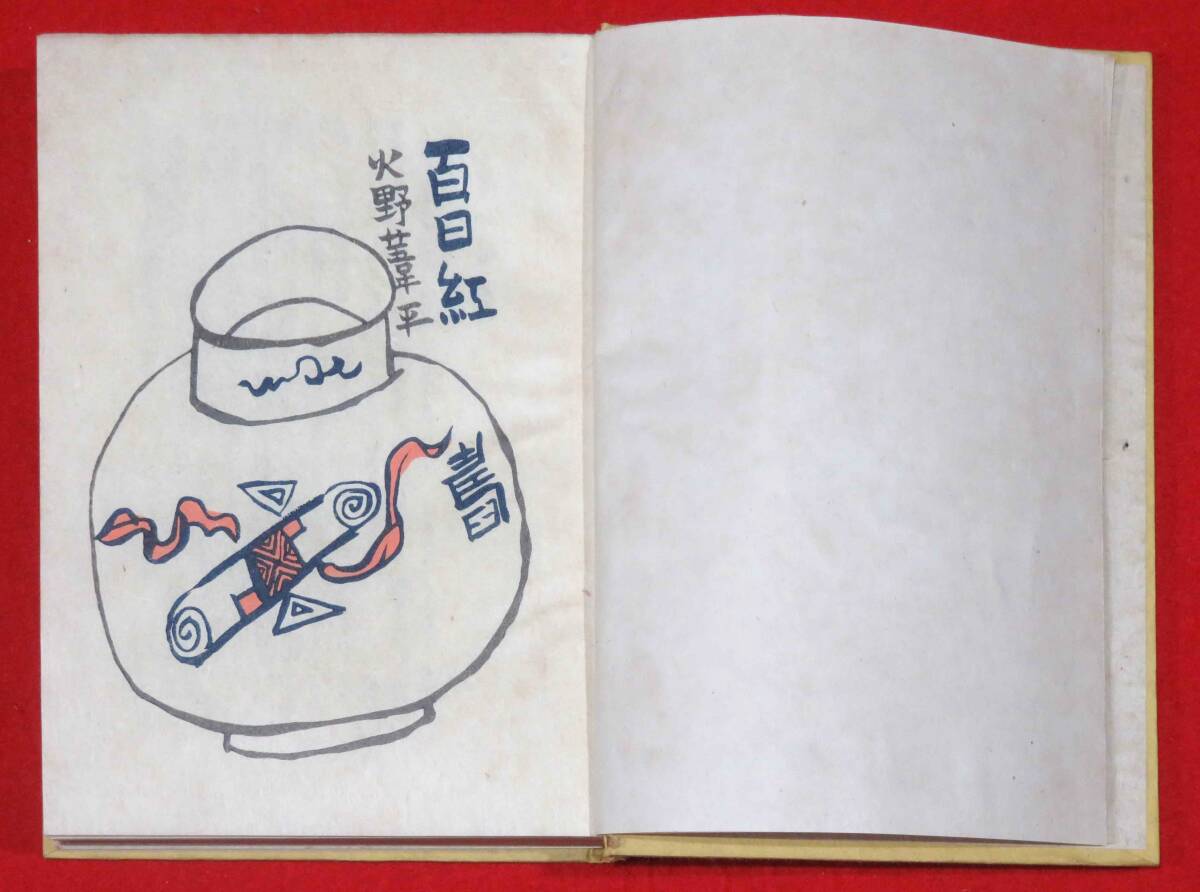 百日紅
火野葦平
壽